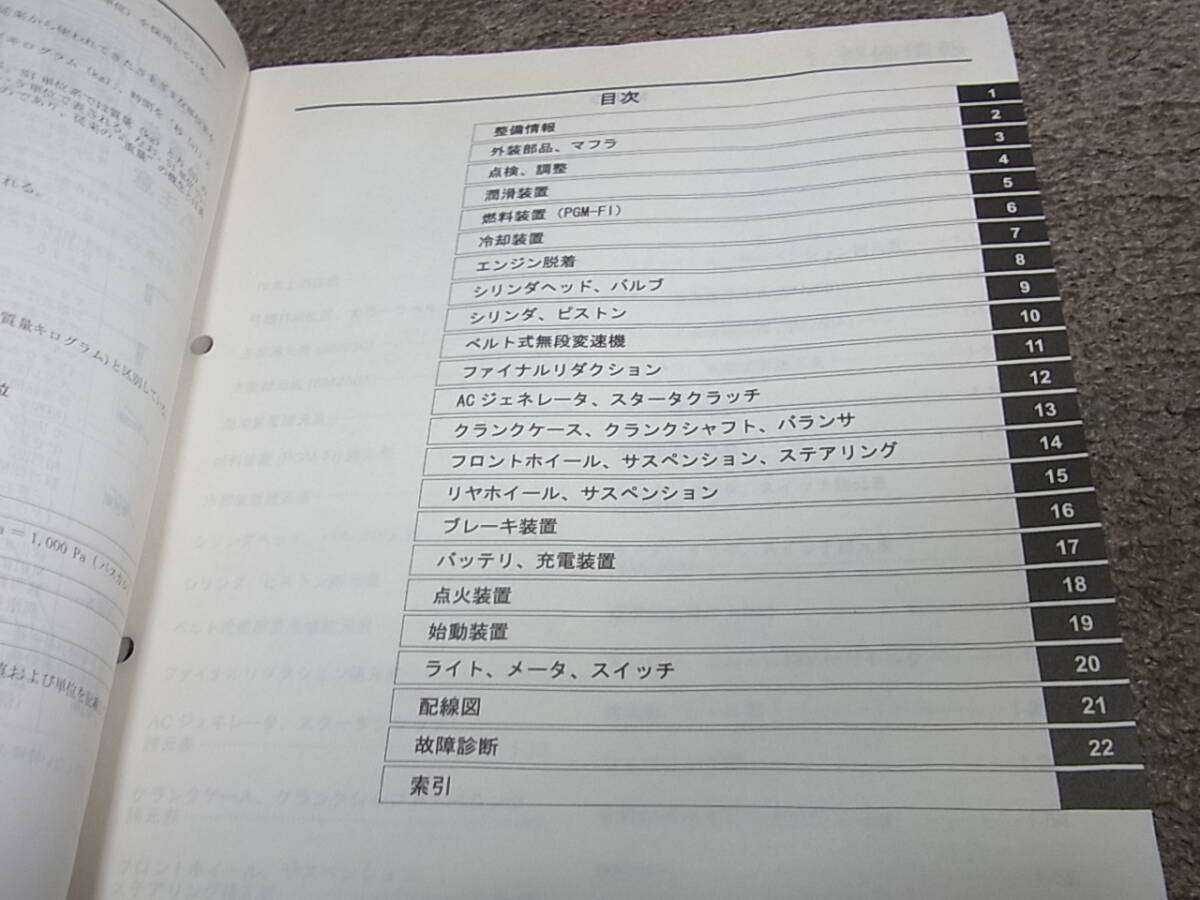 単位）を採用している。
従来から使われてきたさまざまな単位系を
キログラム（kg）、時間を「秒（s）」と
れる。
質量キログラム)と区別している。
位
a ＝ 1,000 Pa（パスカル
直および単位を記載
目次
整備情報 1
外装部品、マフラ 2
点検、調整 3
潤滑装置 4
燃料装置（PGM-FI） 5
冷却装置 6
エンジン脱着 7
シリンダヘッド、バルブ 8
シリンダ、ピストン 9
ベルト式無段変速機 10
ファイナルリダクション 11
AC ジェネレータ、スタータクラッチ 12
クランクケース、クランクシャフト、バランサ 13
フロントホイール、サスペンション、ステアリング 14
リヤホイール、サスペンション 15
ブレーキ装置 16
バッテリ、充電装置 17
点火装置 18
始動装置 19
ライト、メータ、スイッチ 20
配線図 21
故障診断 22
索引